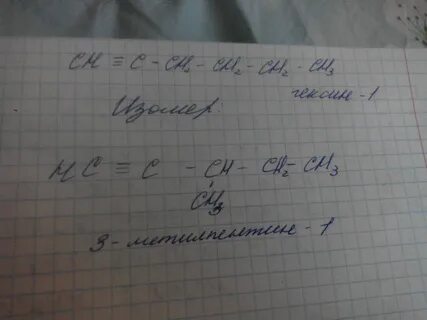 CH ≡ C - CH₂ - CH₂ - CH₂ - CH₃
гексин -1
Изомер.
HC ≡ C - CH - CH₂ - CH₃
CH₃
3 - метилпентин - 1